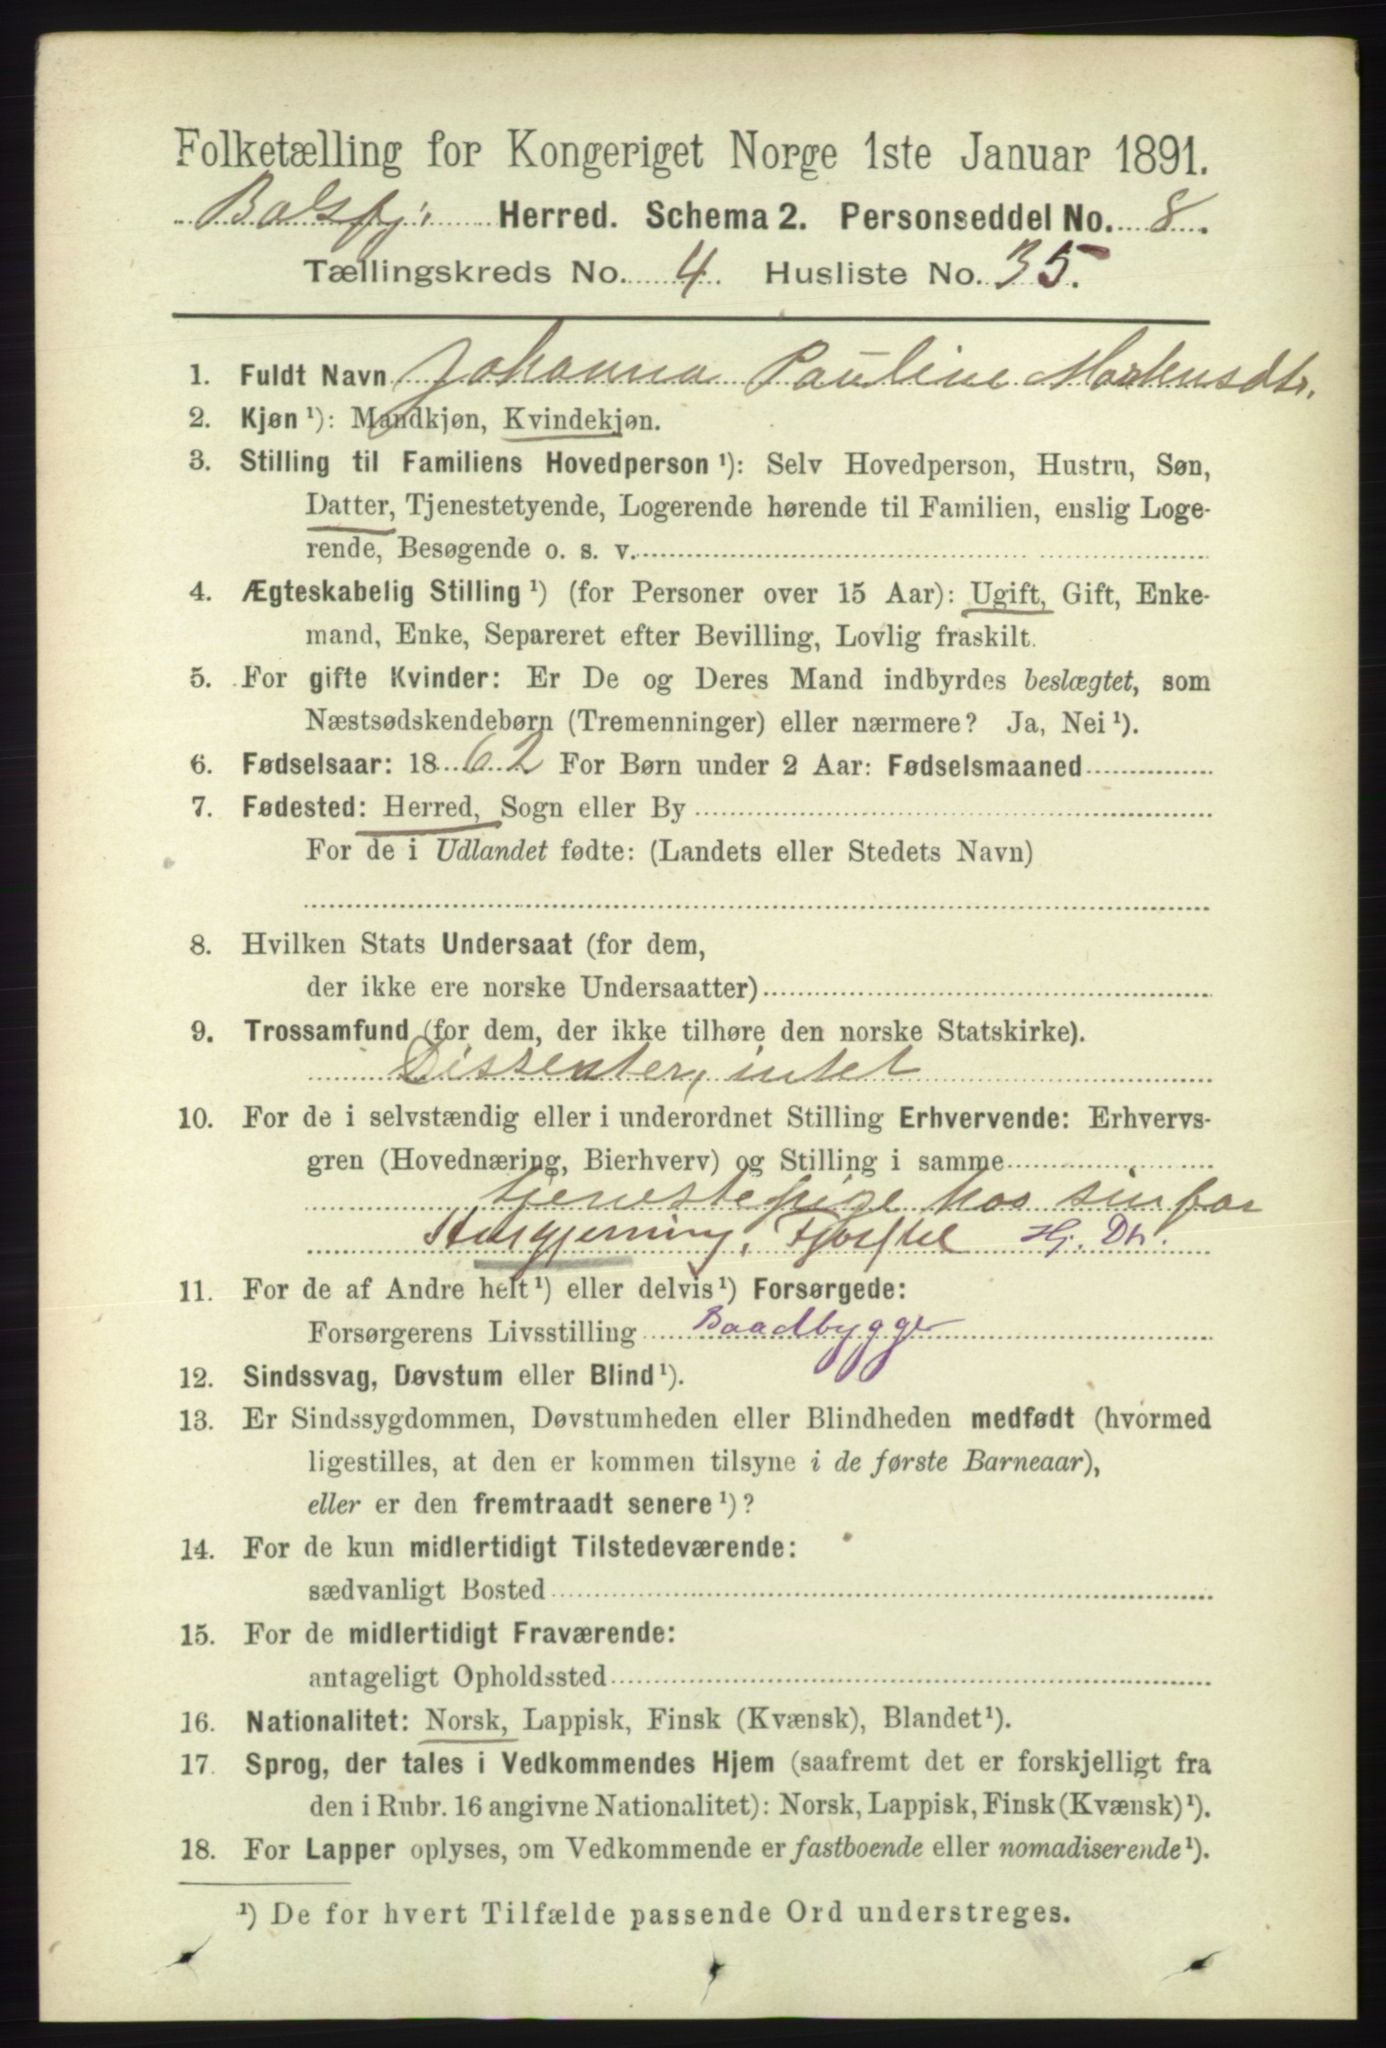 Folketælling for Kongeriget Norge 1ste Januar 1891.
Balsfj: Herred. Schema 2. Personseddel No. 8.
Tællingskreds No. 4. Husliste No. 35.
1. Fuldt Navn Johanna Pauline Mortensdtr.
2. Kjøn ¹): Mandkjøn, Kvindekjøn.
3. Stilling til Familiens Hovedperson ¹): Selv Hovedperson, Hustru, Søn,
Datter, Tjenestetyende, Logerende hørende til Familien, enslig Loge-
rende, Besøgende o. s. v.
4. Ægteskabelig Stilling ¹) (for Personer over 15 Aar): Ugift, Gift, Enke-
mand, Enke, Separeret efter Bevilling, Lovlig fraskilt.
5. For gifte Kvinder: Er De og Deres Mand indbyrdes beslægtet, som
Næstsødskendebørn (Tremenninger) eller nærmere? Ja, Nei ¹).
6. Fødselsaar: 1862 For Børn under 2 Aar: Fødselsmaaned
7. Fødested: Herred, Sogn eller By
For de i Udlandet fødte: (Landets eller Stedets Navn)
8. Hvilken Stats Undersaat (for dem,
der ikke ere norske Undersaatter)
9. Trossamfund (for dem, der ikke tilhøre den norske Statskirke).
Dissenter, intet
10. For de i selvstændig eller i underordnet Stilling Erhvervende: Erhvervs-
gren (Hovednæring, Bierhverv) og Stilling i samme
tjenestepige hos sin far
Husgjerning, Fjøsstel Hj. Dtr.
11. For de af Andre helt ¹) eller delvis ¹) Forsørgede:
Forsørgerens Livsstilling Baadbygger
12. Sindssvag, Døvstum eller Blind ¹).
13. Er Sindssygdommen, Døvstumheden eller Blindheden medfødt (hvormed
ligestilles, at den er kommen tilsyne i de første Barneaar),
eller er den fremtraadt senere ¹)?
14. For de kun midlertidigt Tilstedeværende:
sædvanligt Bosted
15. For de midlertidigt Fraværende:
antageligt Opholdssted
16. Nationalitet: Norsk, Lappisk, Finsk (Kvænsk), Blandet ¹).
17. Sprog, der tales i Vedkommendes Hjem (saafremt det er forskjelligt fra
den i Rubr. 16 angivne Nationalitet): Norsk, Lappisk, Finsk (Kvænsk) ¹).
18. For Lapper oplyses, om Vedkommende er fastboende eller nomadiserende ¹).
¹) De for hvert Tilfælde passende Ord understreges.